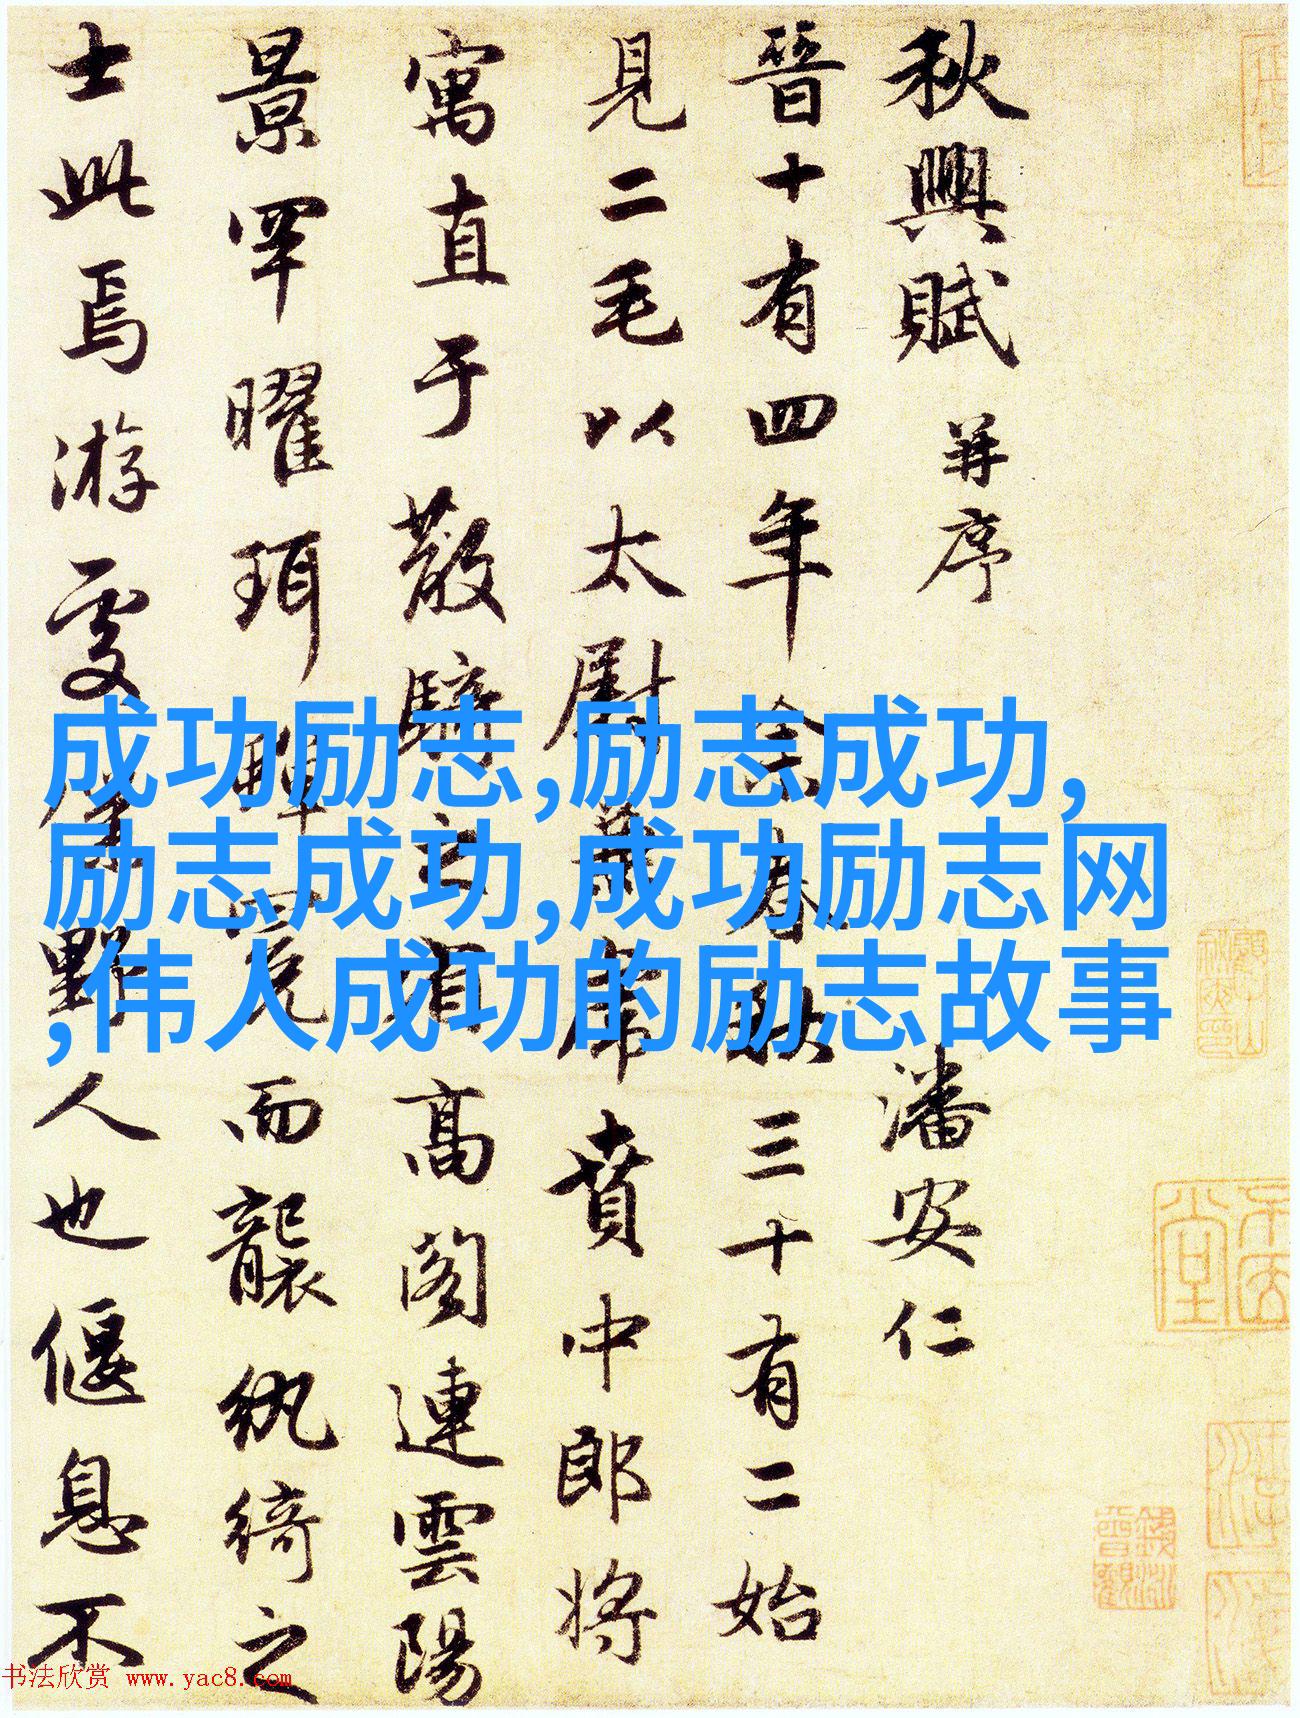 秋興賦 并序 潘安仁
晉十有四年余春秋三十有二始
見二毛以太尉兼虎賁中郎将
寓直于散騎之省高阁連雲陽
景罕曜珥蟬冕而襲紈綺之
士此焉游處僕野人也偃息不
成功励志,励志成功,
励志成功,成功励志网
,伟人成功的励志故事
书法欣赏 www.yac8.com